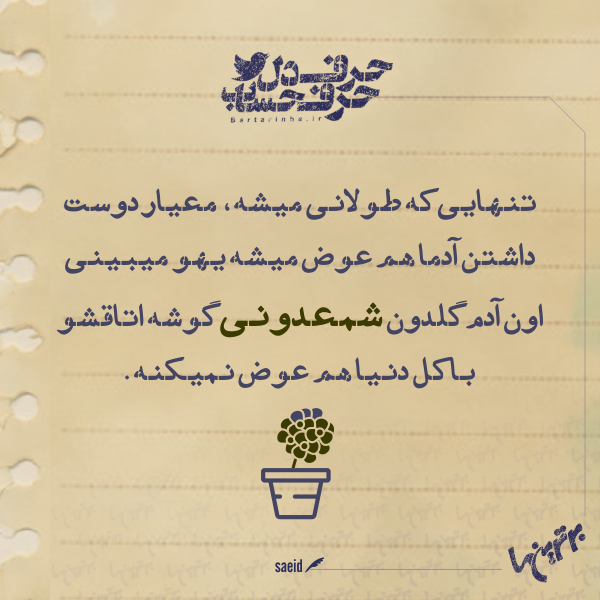 حرف دل
حرف حساب
Bartarinha.ir
تنهایی که طولانی میشه، معیار دوست
داشتن آدما هم عوض میشه یهو میبینی
اون آدم گلدون شمعدونی گوشه اتاقشو
با کل دنیا هم عوض نمیکنه.
saeid
برترین ها